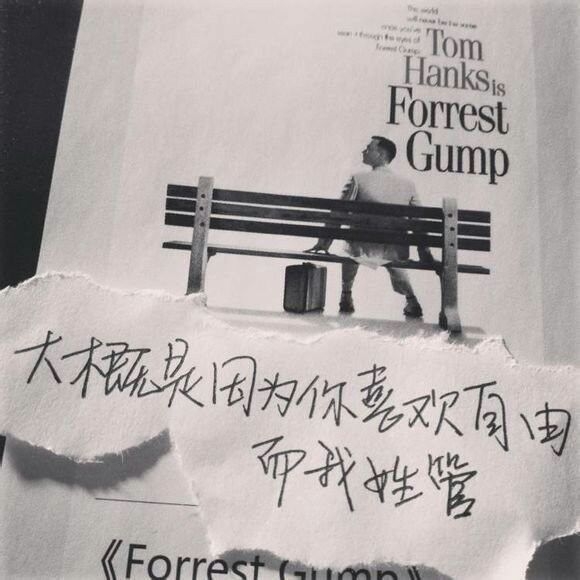 The world
will never be the same
once you've
seen it through the eyes of
Forrest Gump.
Tom
Hanks is
Forrest
Gump
大概是因为你喜欢自由
而我姓管
《Forrest Gump》